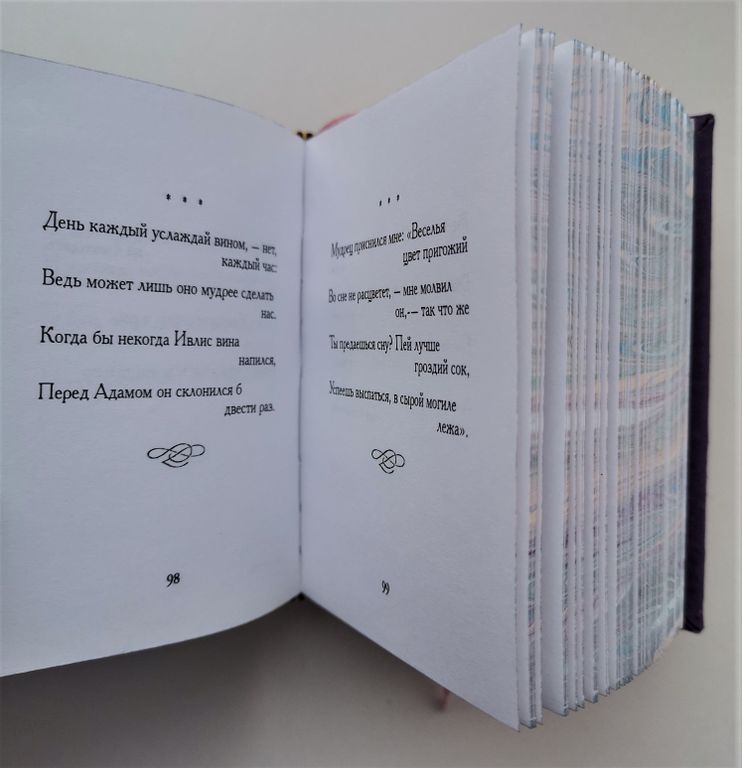 * * *
День каждый услаждай вином, – нет,
каждый час:
Ведь может лишь оно мудрее сделать
нас.
Когда бы некогда Ивлис вина
напился,
Перед Адамом он склонился б
двести раз.
98
* * *
Мудрец приснился мне: «Веселья
цвет пригожий
Во сне не расцветет, – мне молвил
он,-– так что же
Ты предаешься сну? Пей лучше
гроздий сок,
Успеешь выспаться, в сырой могиле
лежа».
99